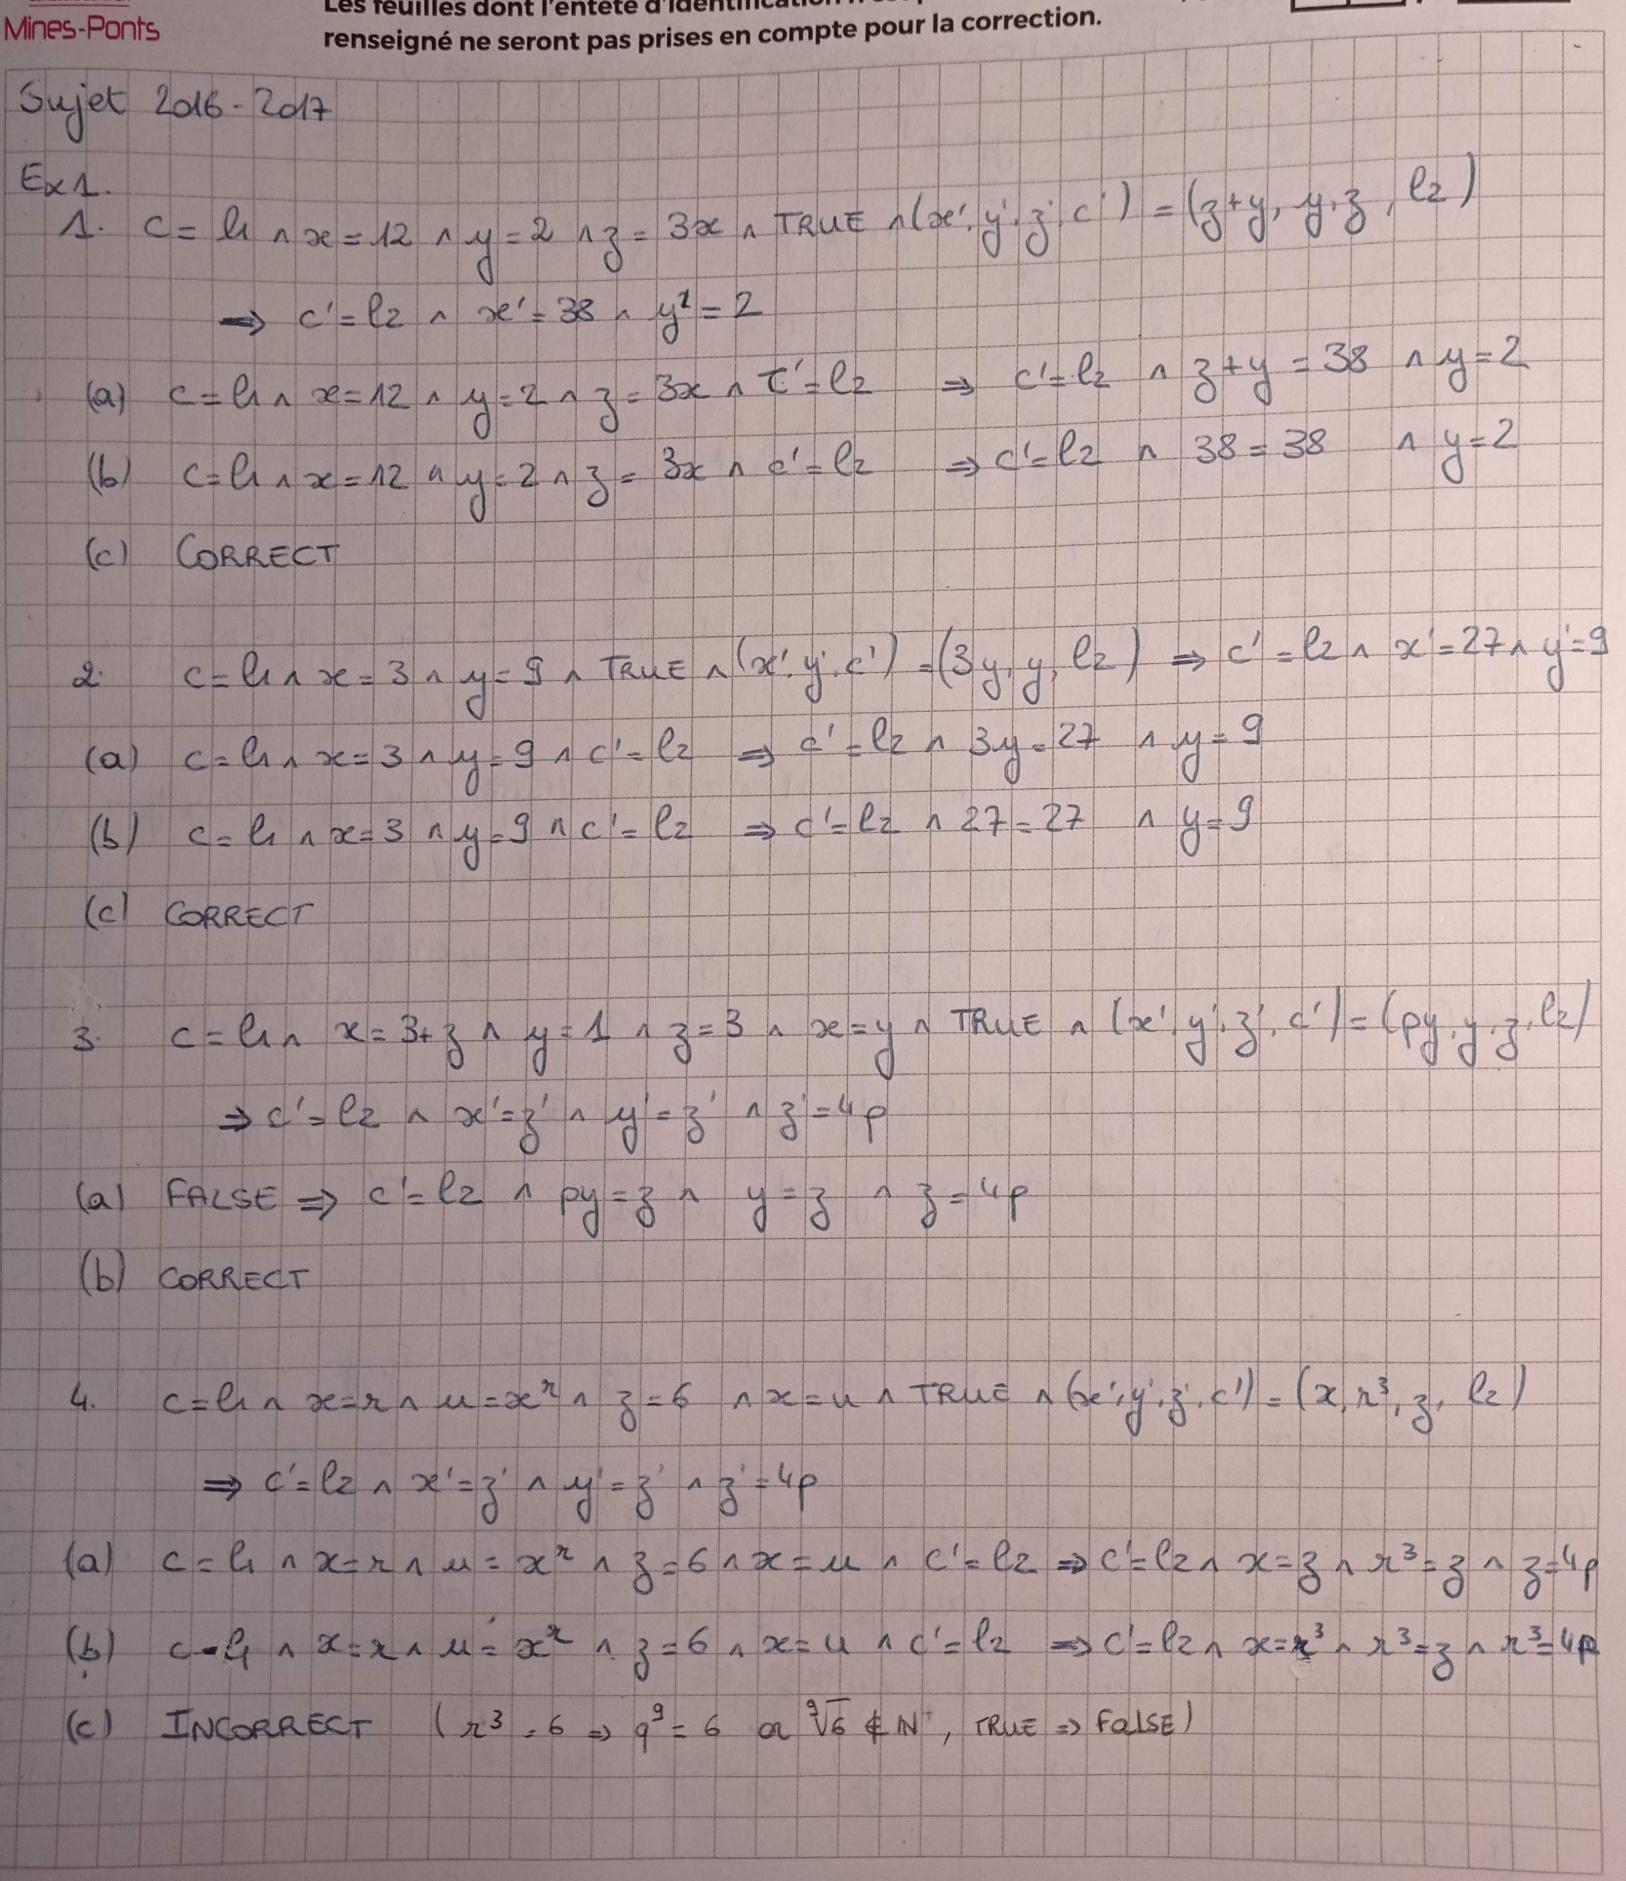 Les feuilles dont l'entête d'identification
Mines-Ponts
renseigné ne seront pas prises en compte pour la correction.
Sujet 2016-2017
Ex1.
1. c = l1 ∧ x = 12 ∧ y = 2 ∧ z = 3x ∧ TRUE ∧ (x', y', z', c') = (z+y, y, z, l2)
⇒ c' = l2 ∧ x' = 38 ∧ y' = 2
(a) c = l1 ∧ x = 12 ∧ y = 2 ∧ z = 3x ∧ c' = l2 ⇒ c' = l2 ∧ z+y = 38 ∧ y = 2
(b) c = l1 ∧ x = 12 ∧ y = 2 ∧ z = 3x ∧ c' = l2 ⇒ c' = l2 ∧ 38 = 38 ∧ y = 2
(c) CORRECT
2. c = l1 ∧ x = 3 ∧ y = 9 ∧ TRUE ∧ (x', y', c') = (3y, y, l2) ⇒ c' = l2 ∧ x' = 27 ∧ y' = 9
(a) c = l1 ∧ x = 3 ∧ y = 9 ∧ c' = l2 ⇒ c' = l2 ∧ 3y = 27 ∧ y = 9
(b) c = l1 ∧ x = 3 ∧ y = 9 ∧ c' = l2 ⇒ c' = l2 ∧ 27 = 27 ∧ y = 9
(c) CORRECT
3. c = l1 ∧ x = 3+z ∧ y = 1 ∧ z = 3 ∧ x = y ∧ TRUE ∧ (x', y', z', c') = (py, y, z, l2)
⇒ c' = l2 ∧ x' = z' ∧ y' = z' ∧ z' = 4p
(a) FALSE ⇒ c' = l2 ∧ py = z ∧ y = z ∧ z = 4p
(b) CORRECT
4. c = l1 ∧ x = r ∧ u = x^r ∧ z = 6 ∧ x = u ∧ TRUE ∧ (x', y', z', c') = (x, r³, z, l2)
⇒ c' = l2 ∧ x' = z' ∧ y' = z' ∧ z' = 4p
(a) c = l1 ∧ x = r ∧ u = x^r ∧ z = 6 ∧ x = u ∧ c' = l2 ⇒ c' = l2 ∧ x = z ∧ r³ = z ∧ z = 4p
(b) c = l1 ∧ x = r ∧ u = x^r ∧ z = 6 ∧ x = u ∧ c' = l2 ⇒ c' = l2 ∧ x = r³ ∧ r³ = z ∧ r³ = 4p
(c) INCORRECT (r³ = 6 ⇒ q⁹ = 6 or ⁹√6 ∉ N⁺, TRUE ⇒ FALSE)